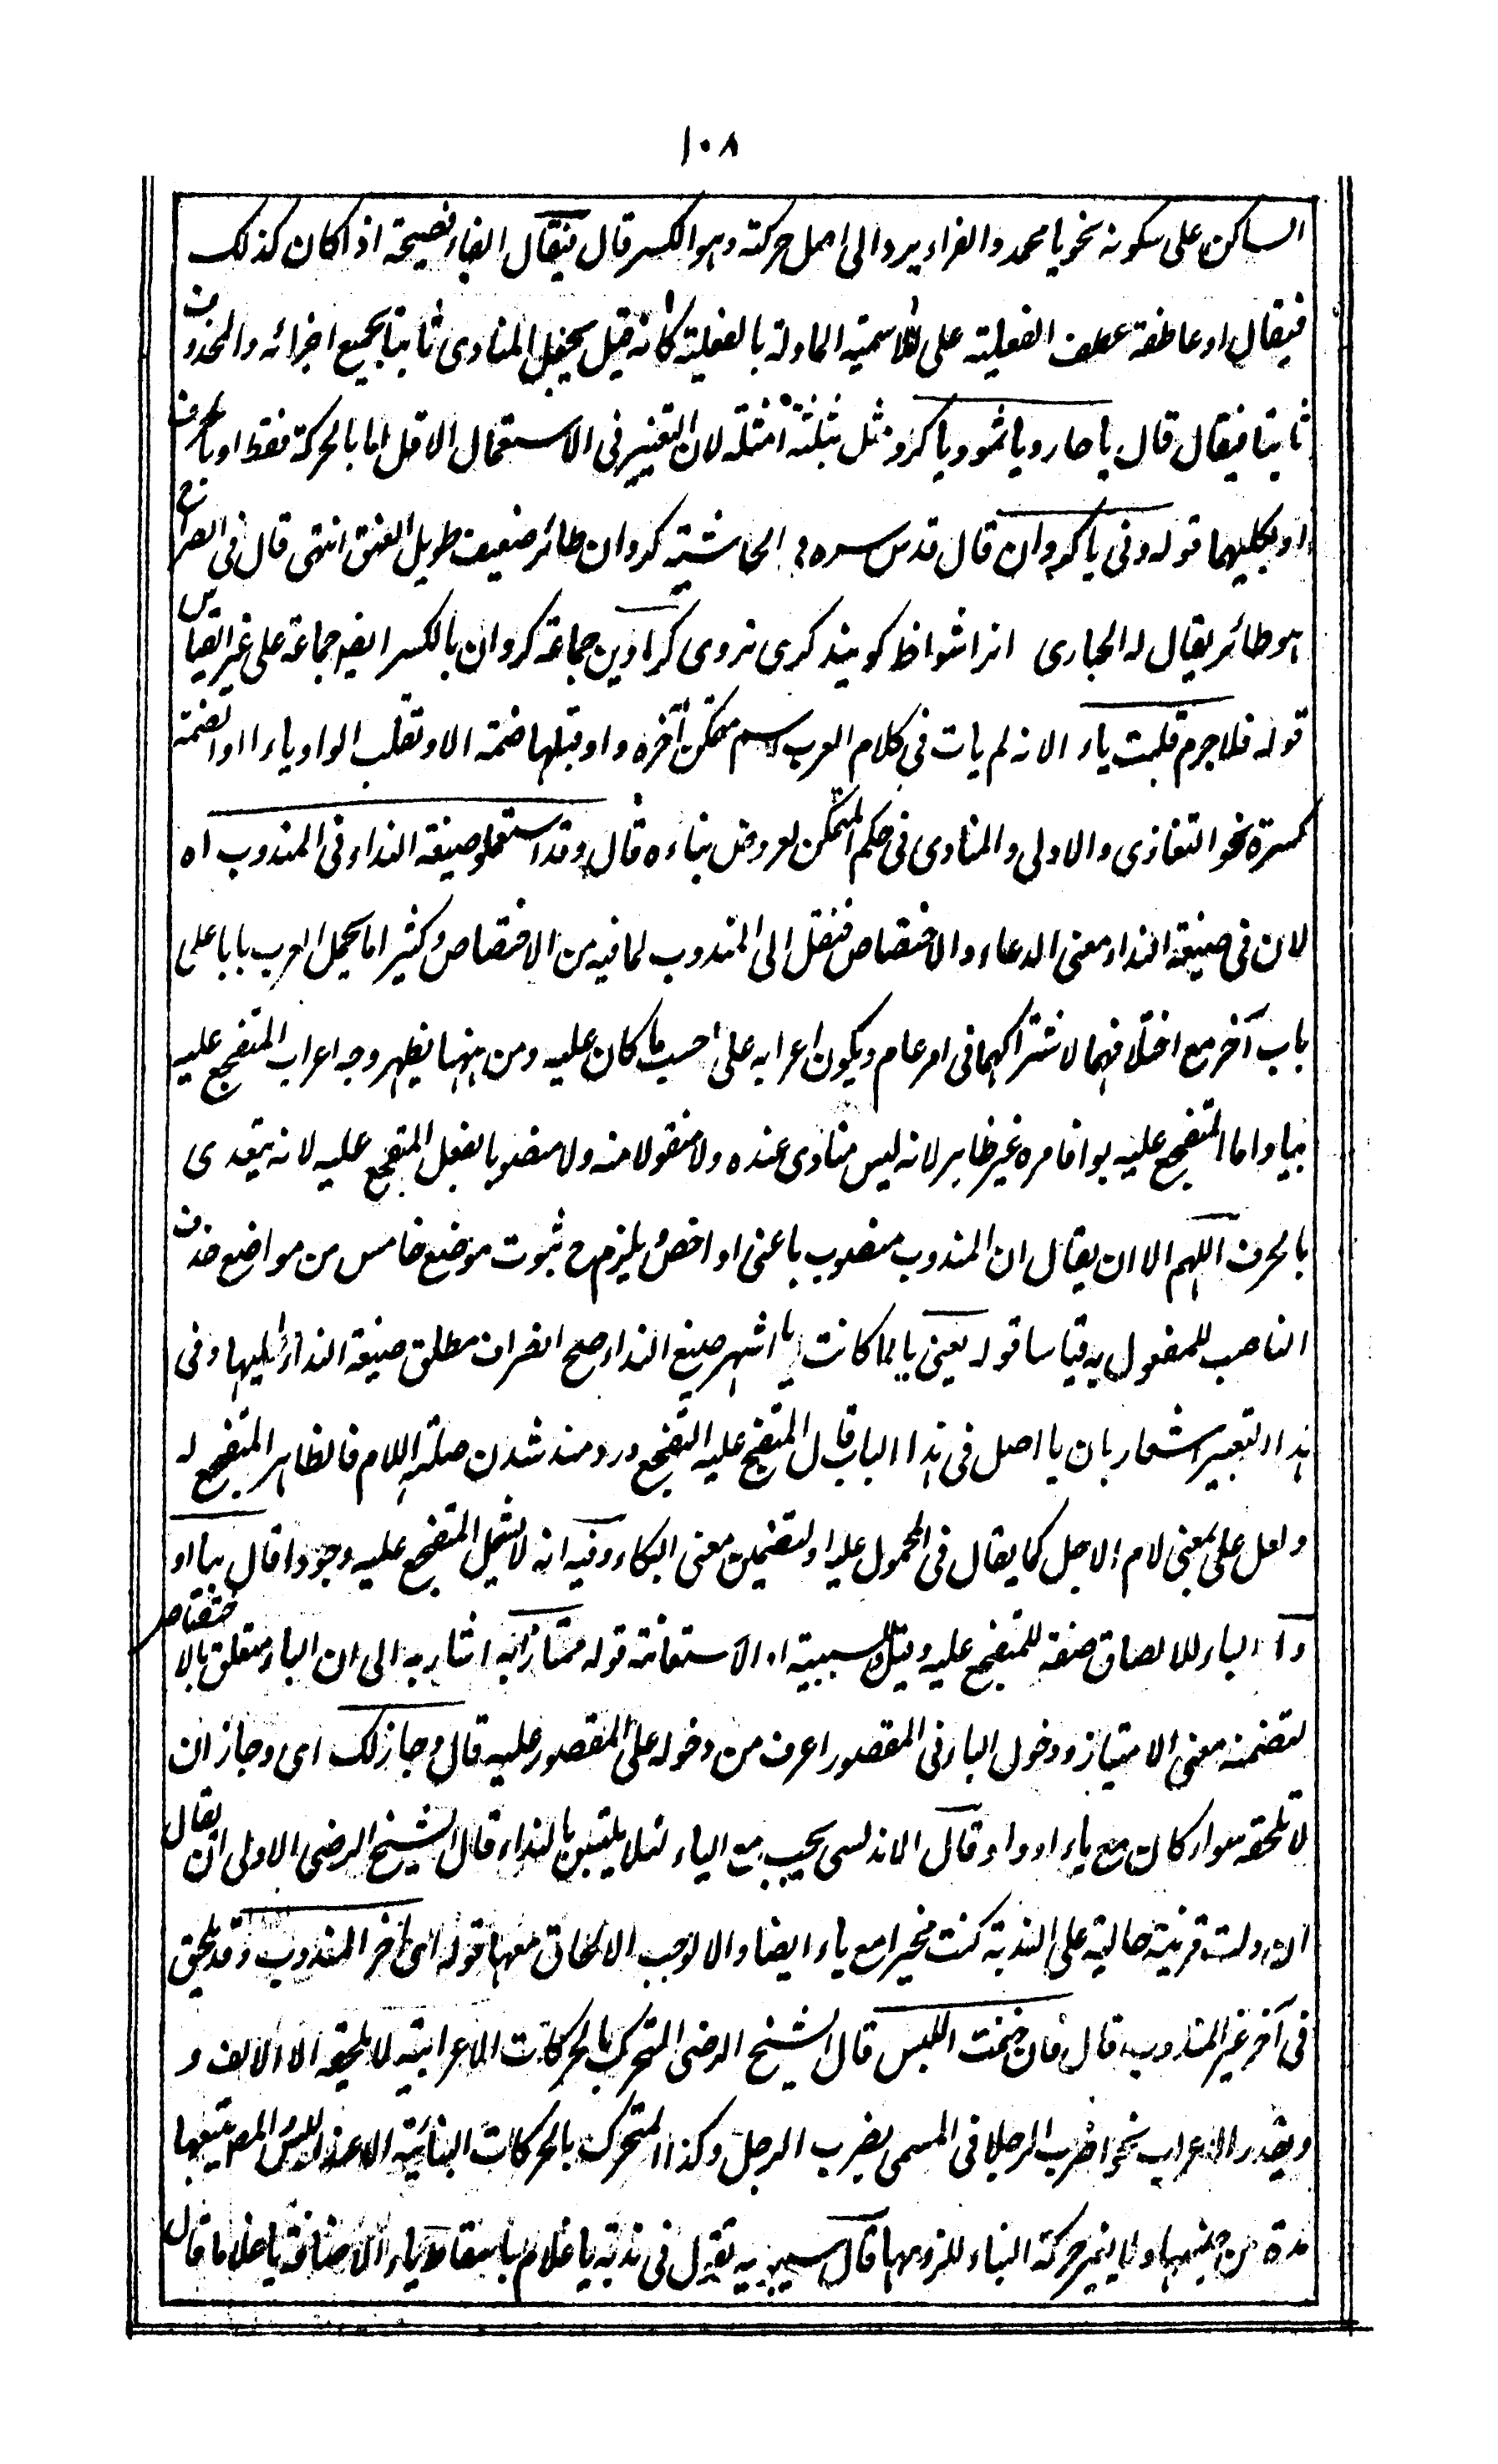 ١٠٨
الساكن على سكونه نحو يا محمد والفراء يرد الى اصل حركته وهو الكسر قال فيقال الفاء فصيحة اذا كان كذلك
فيقال او عاطفة عطف الفعلية على الاسمية الماولة بالفعلية كانه قيل يجعل المنادى ثابتا بجميع اجزائه والمحذوف
ثابتا فيقال قال يا حار ويا ثمو ويا كرو مثل بثلثة امثلة لان التغيير فى الاستعمال الاقل اما بالحركة فقط او بالحرف
او بكليهما قوله وفى يا كروان قال قدس سره فى الحاشية كروان طائر ضعيف طويل العنق انتهى قال فى الصراح
هو طائر يقال له الحبارى كروى كراوين جماعة كروان بالكسر ايضا جماعة على غير القياس
قوله فلا جرم قلبت ياء لانه لم يات فى كلام العرب اسم متمكن آخره واو قبلها ضمة الا و تقلب الواو ياء او الضمة
كسرة نحو التغازى والادلى والمنادى فى حكم المتمكن لعروض بناءه قال وقد استعملوا صيغة النداء فى المندوب اه
لان فى صيغة النداء معنى الدعاء والاختصاص فنقل الى المندوب لما فيه من الاختصاص وكثيرا ما يحمل العرب بابا على
باب آخر مع اختلافهما لاشتراكهما فى امر عام ويكون اعرابه على حسب ما كان عليه ومن ههنا يظهر وجه اعراب المتفجع عليه
بيا واما المتفجع عليه بوا فامره غير ظاهر لانه ليس منادى عنده ولا منقولا منه ولا منصوبا بفعل المتفجع عليه لانه يتعدى
بالحرف اللهم الا ان يقال ان المندوب منصوب باعنى او اخص ويلزم ح ثبوت موضع خامس من مواضع حذف
الناصب للمفعول به قياسا قوله يعنى يا لما كانت يا اشهر صيغ النداء صح انصراف مطلق صيغة النداء اليها وفى
هذا التعبير اشعار بان يا اصل فى هذا الباب قال المتفجع عليه التفجع دردمند شدن صلته اللام فالظاهر المتفجع له
ولعل على بمعنى لام الاجل كما يقال فى المحمول عليه او لتضمين معنى البكاء وفيه انه لا يشمل المتفجع عليه وجودا قال بيا او
وا الباء للالصاق صفة للمتفجع عليه وقيل للسببية او الاستعانة قوله ممتازا به اشار به الى ان الباء متعلق بالاختصاص
لتضمنه معنى الامتياز ودخول الباء فى المقصور اعرف من دخوله على المقصور عليه قال وجاز لك اى وجاز ان
لا تلحقه سواء كان مع ياء او وا وقال الاندلسى يجب مع الياء لئلا يلتبس بالنداء قال الشيخ الرضى الاولى ان يقال
ان دلت قرينة حالية على الندبة كنت مخيرا مع ياء ايضا والا لوجب الالحاق معها قوله اى آخر المندوب وقد يلحق
فى آخر غير المندوب قال فان خفت اللبس قال الشيخ الرضى المتحرك بالحركات الاعرابية لا يلحقه الا الالف و
ويقدر الاعراب نحو اضرب الرجلا فى المسمى بضرب الرجل وكذا المتحرك بالحركات البنائية الا عند اللبس يتبعها
مدة من جنسها ولا يغير حركة البناء للزومها قال سيبويه تقول فى ندبة يا غلام باسقاط ياء الاضافة يا غلاما قال